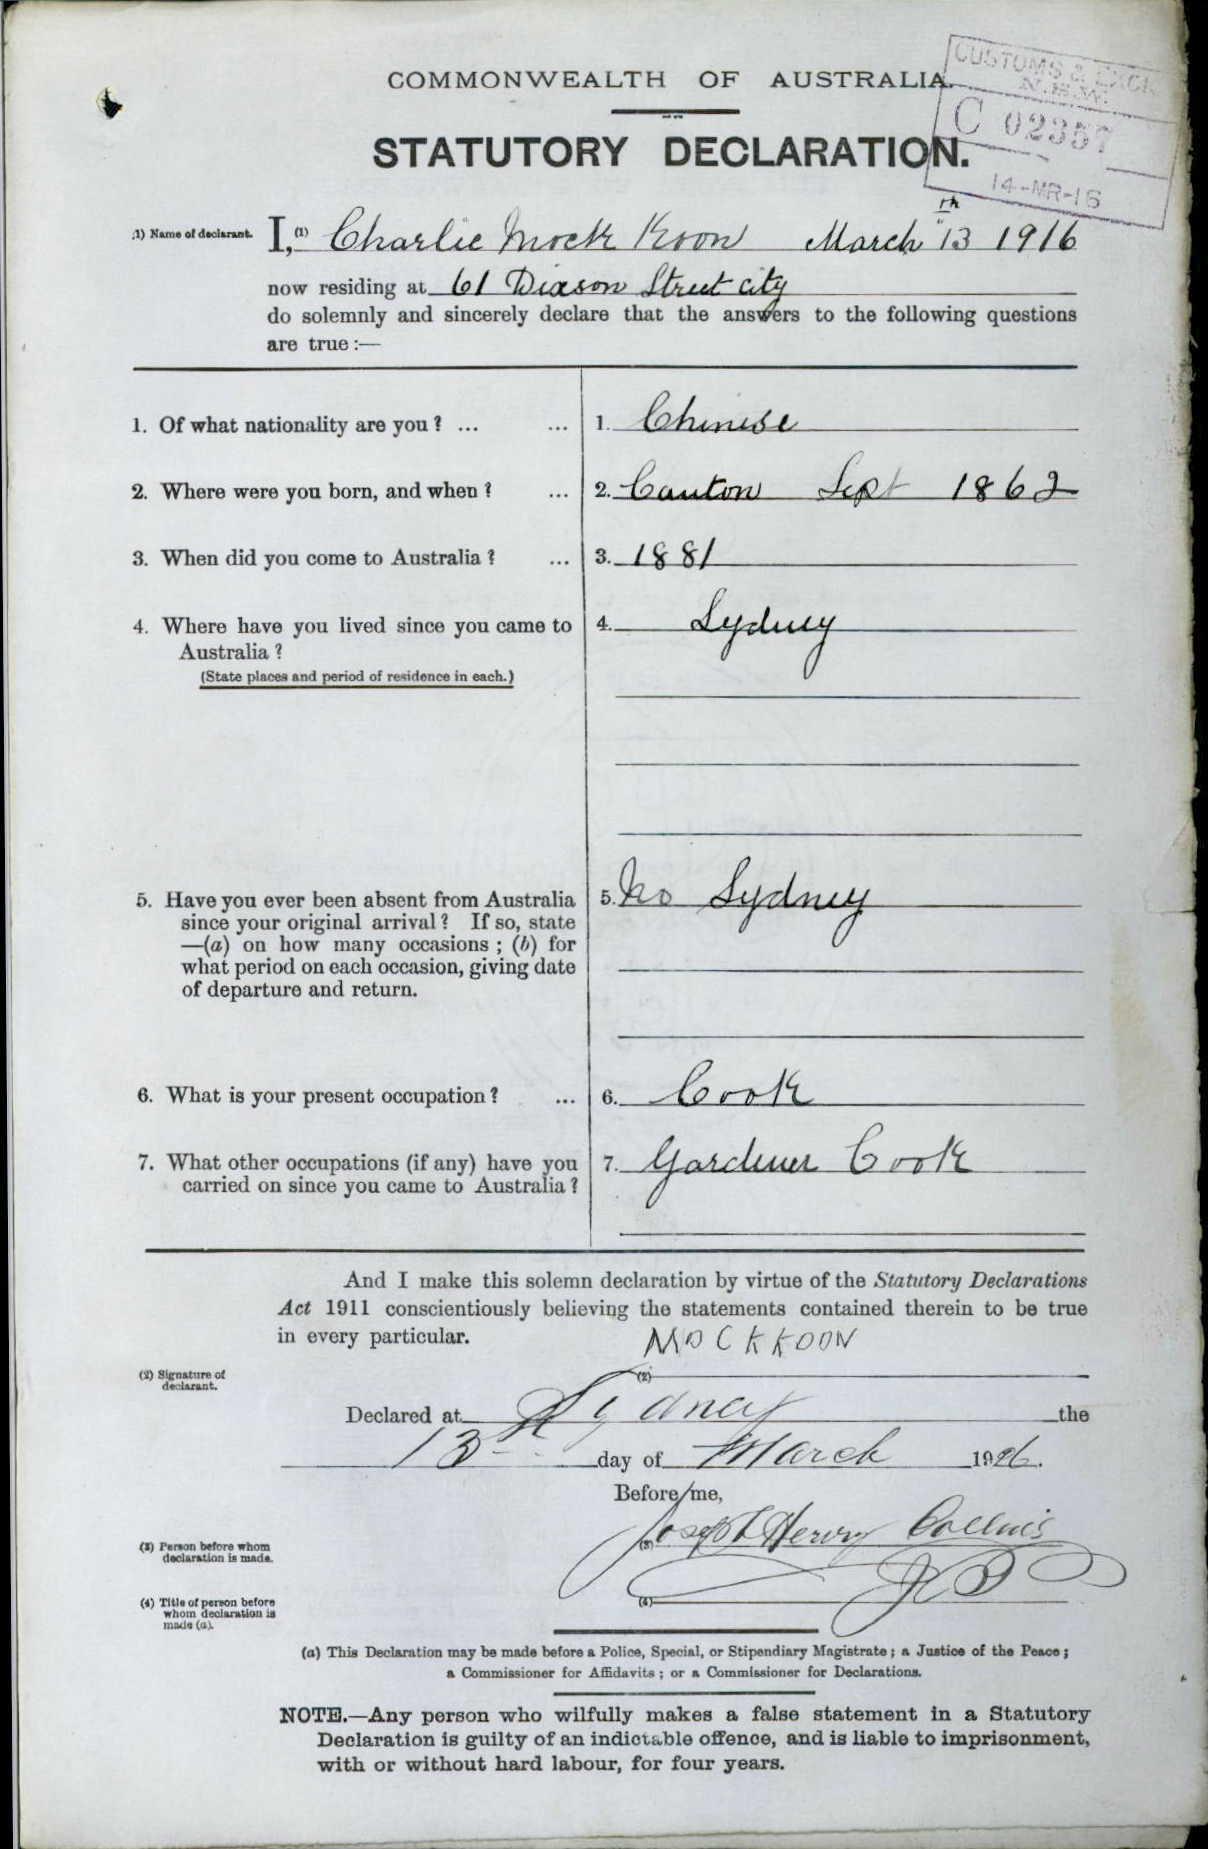 COMMONWEALTH OF AUSTRALIA.
CUSTOMS & EXCI
N.S.W.
C 02357
14-MR-16
STATUTORY DECLARATION.
(1) Name of declarant. I,(1) Charlie Mock Koon March 13th 1916
now residing at 61 Dixson Street City
do solemnly and sincerely declare that the answers to the following questions
are true :—
1. Of what nationality are you ? ... ... 1. Chinese
2. Where were you born, and when ? ... 2. Canton Sept 1862
3. When did you come to Australia ? ... 3. 1881
4. Where have you lived since you came to 4. Sydney
Australia ?
(State places and period of residence in each.)
5. Have you ever been absent from Australia 5. No Sydney
since your original arrival ? If so, state
—(a) on how many occasions ; (b) for
what period on each occasion, giving date
of departure and return.
6. What is your present occupation ? ... 6. Cook
7. What other occupations (if any) have you 7. Gardener Cook
carried on since you came to Australia ?
And I make this solemn declaration by virtue of the Statutory Declarations
Act 1911 conscientiously believing the statements contained therein to be true
in every particular.
MOCKKOON
(2) Signature of (2)
declarant.
Declared at Sydney the
13th day of March 1916.
Before me,
(3) Person before whom (3) Joseph Henry Collins
declaration is made.
(4) Title of person before (4) JP
whom declaration is
made (a).
(a) This Declaration may be made before a Police, Special, or Stipendiary Magistrate ; a Justice of the Peace ;
a Commissioner for Affidavits ; or a Commissioner for Declarations.
NOTE.—Any person who wilfully makes a false statement in a Statutory
Declaration is guilty of an indictable offence, and is liable to imprisonment,
with or without hard labour, for four years.